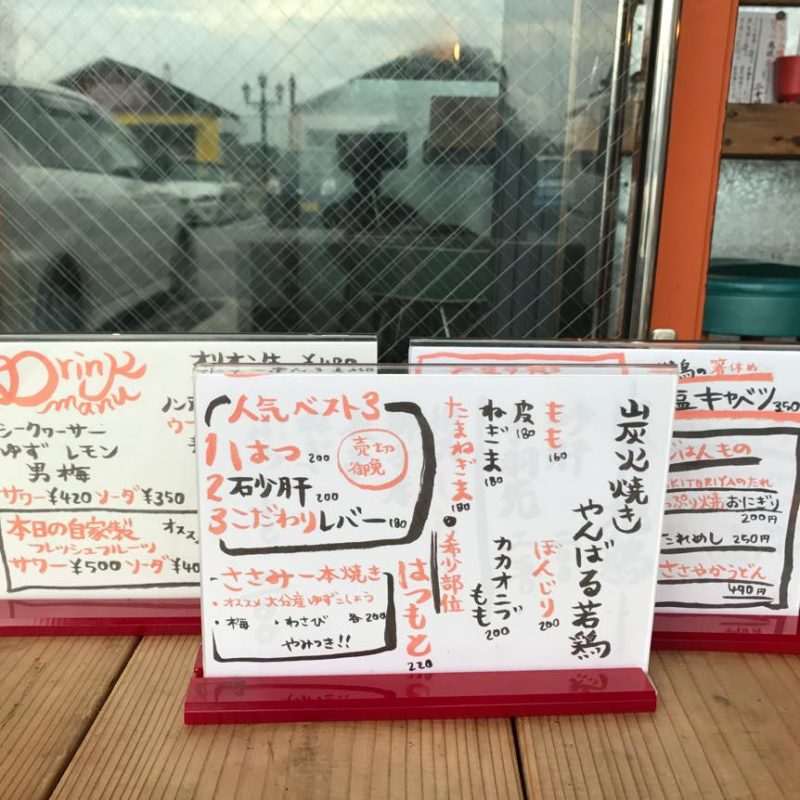 Drink
manu
オリオン生 ¥480
シークヮーサー
ゆず レモン
男梅
サワー ¥420 ソーダ ¥350
本日の自家製
フレッシュフルーツ
サワー ¥500 ソーダ
人気ベスト3
1 はつ 200
2 石少肝 200
3 こだわりレバー 180
売切
御免
ささみ一本焼き
・オススメ大分産ゆずこしょう
・梅 ・わさび 各200
やみつき!!
山炭火焼き
やんばる若鶏
もも 160
皮 180
ねぎま 180
たまねぎま 180
ぼんじり 200
カカオニブ
もも 200
●希少部位
はつもと 220
の箸休め
塩キャベツ 350
ごはんもの
KITORIYAのたれ
っぷり焼おにぎり
200円
たれめし 250円
ささやかうどん
490円